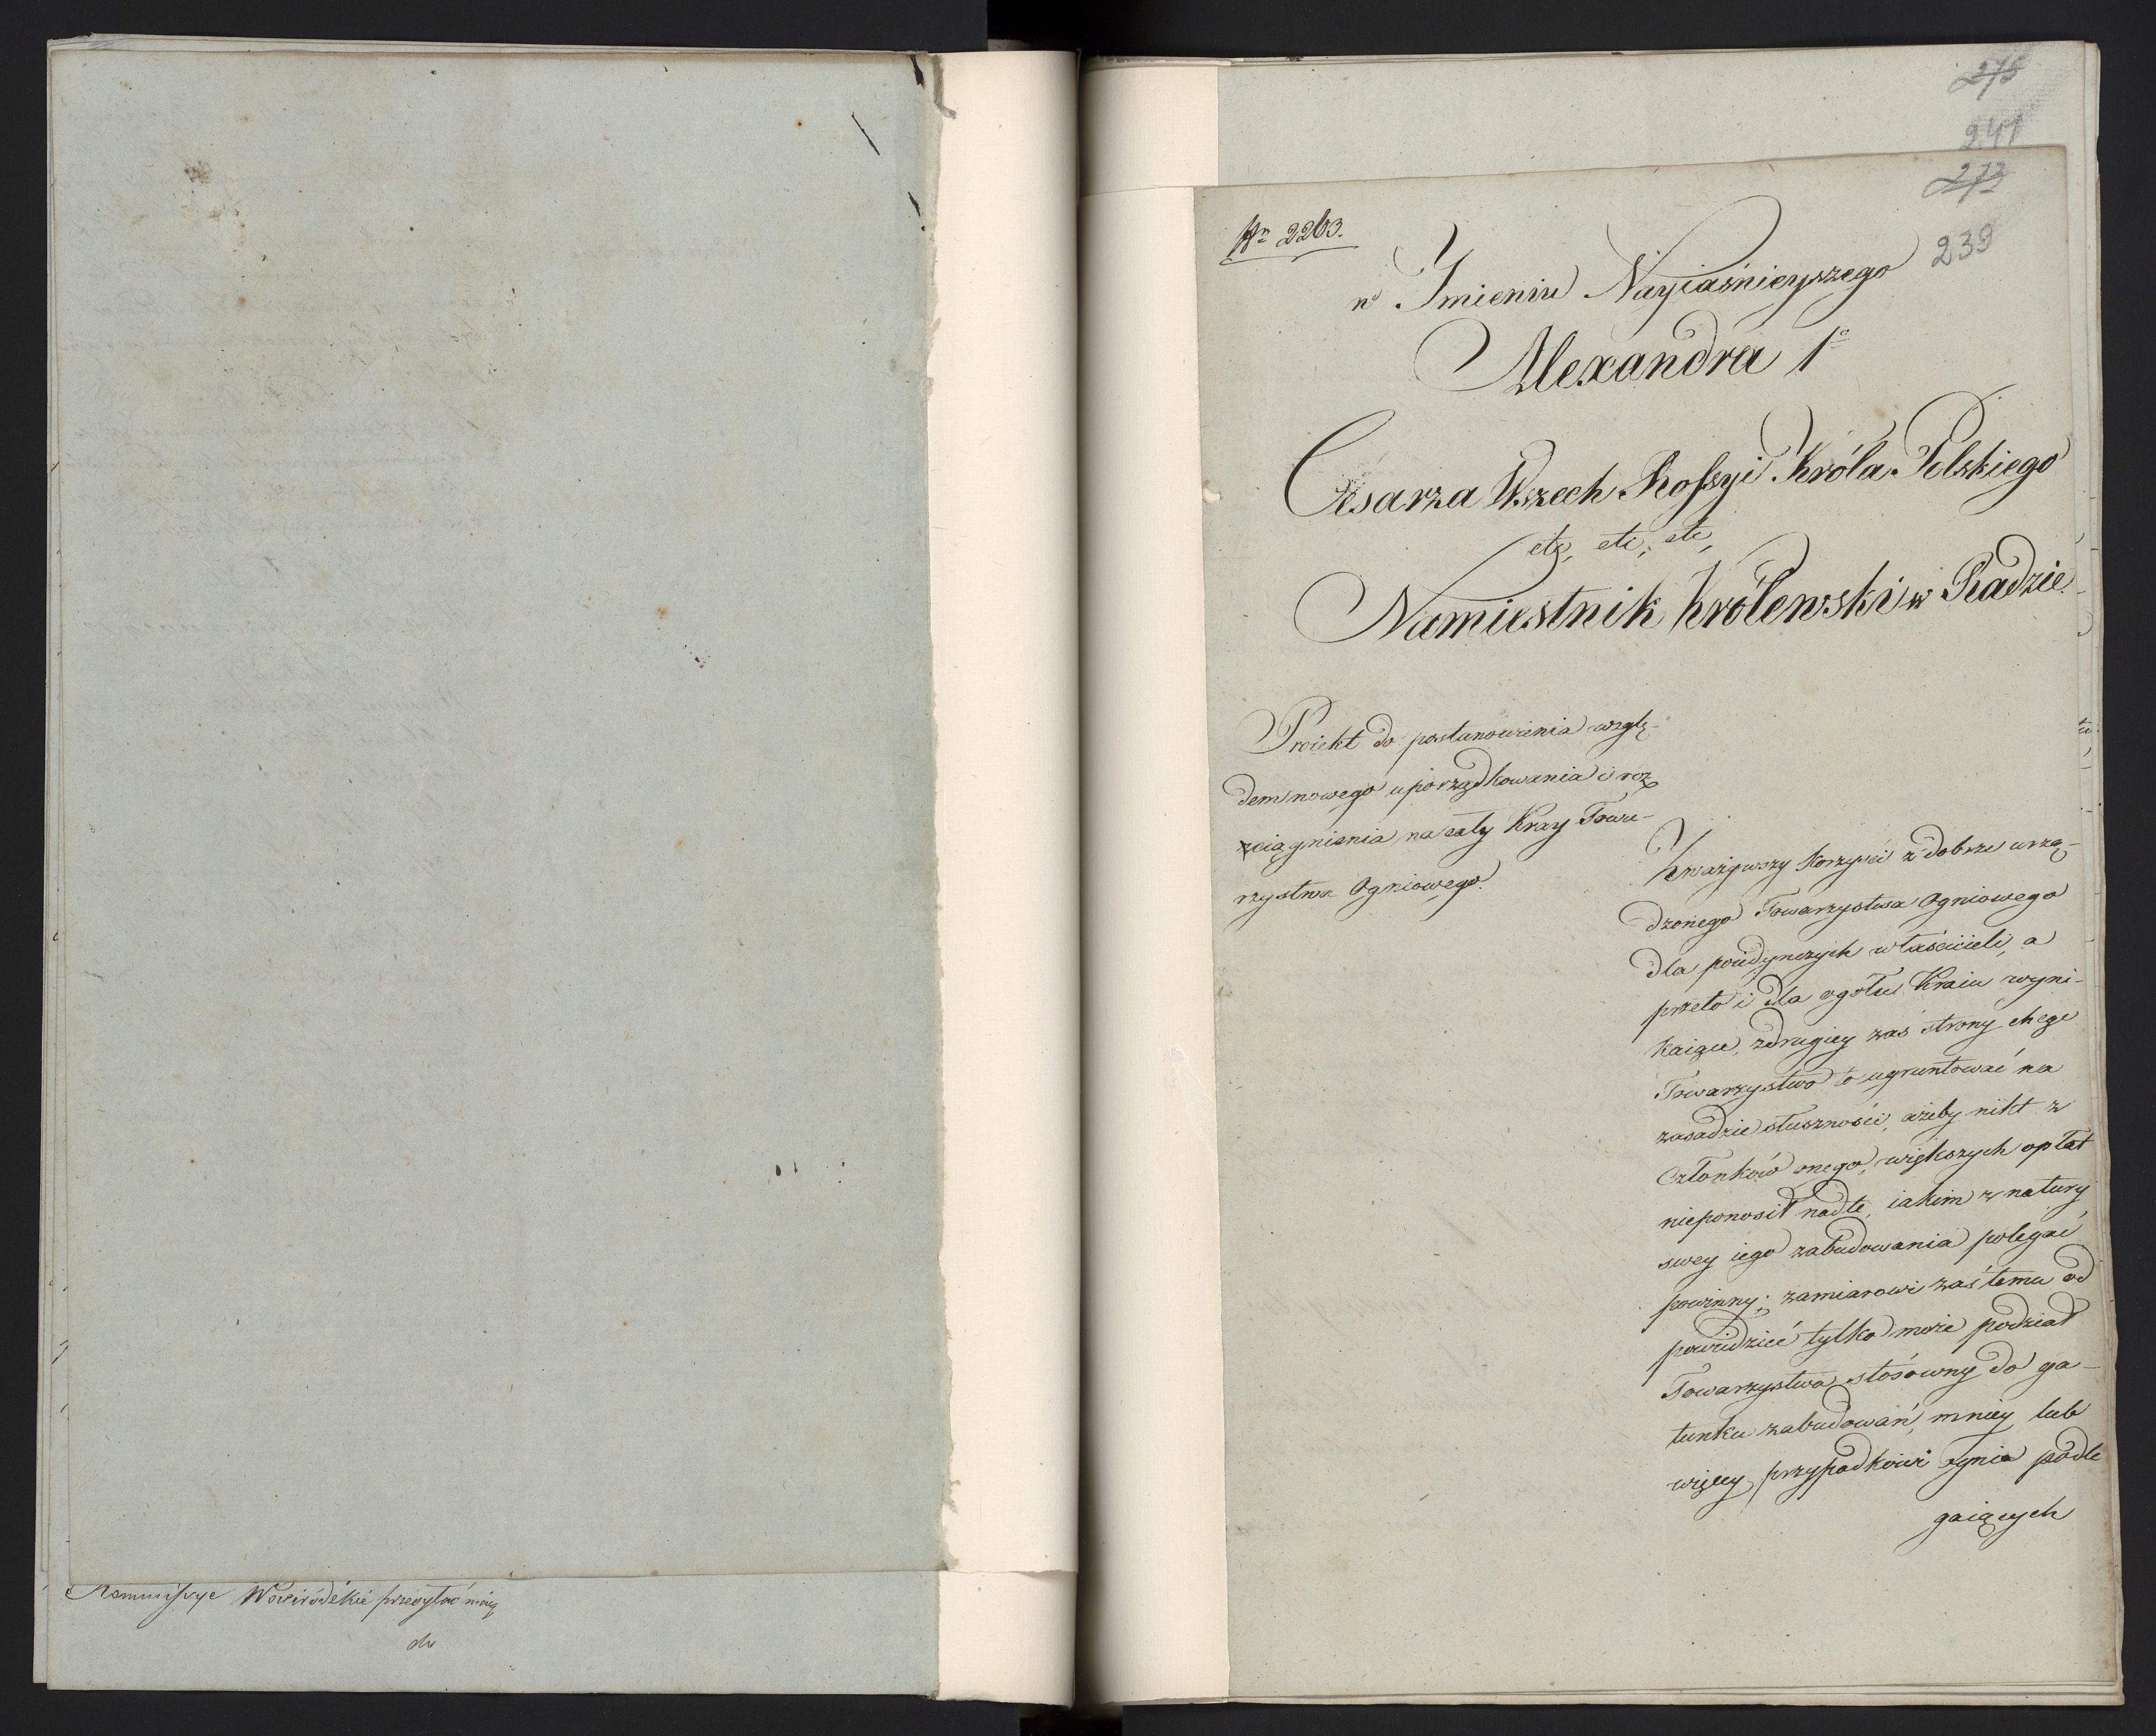 Kommissye Woiewódzkie przesyłać maią
do
275
241
273
239
Nr 2263.
w Imieniu Nayiaśnieyszego
Alexandra 1o
Cesarza Wszech Rossyi Króla Polskiego
etc, etc, etc,
Namiestnik Królewski w Radzie
Proiekt do postanowienia wzglę-
dem nowego uporządkowania i roz
ciągnienia na cały Kray Towa-
rzystwa Ogniowego.
Zważywszy korzyści z dobrze urzą-
dzonego Towarzystwa Ogniowego
dla poiedynczych właścicieli, a
przeto i dla ogółu Kraiu wyni-
kaiące, z drugiey zaś strony chcąc
Towarzystwo to ugruntować na
zasadzie słuszności, ażeby nikt z
Członków onego, większych opłat
nieponosił nad te, iakim z natury
swey iego zabudowania polegać
powinny; zamiarowi zaś temu od
powiedzieć tylko może podział
Towarzystwa stósowny do ga-
tunku zabudowań, mniey lub
więcey przypadkowi Ognia podle
gaiących